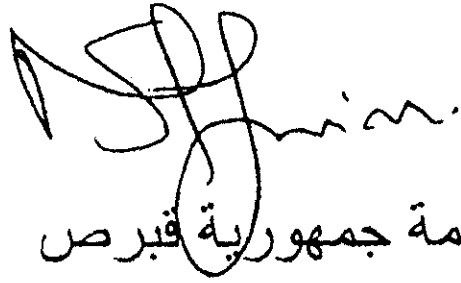 مة جمهورية قبرص